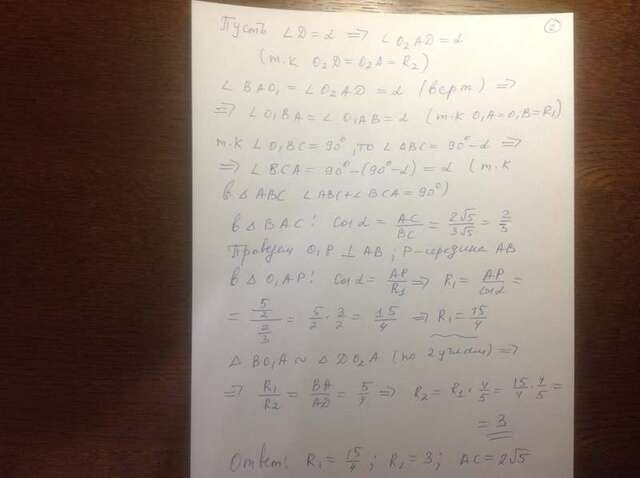 ②
Пусть ∠D = α ⇒ ∠O₂AD = α
(т.к O₂D = O₂A = R₂)
∠BAO₁ = ∠O₂AD = α (верт.) ⇒
⇒ ∠O₁BA = ∠O₁AB = α (т.к O₁A = O₁B = R₁)
т.к ∠O₁BC = 90°, то ∠ABC = 90° - α ⇒
⇒ ∠BCA = 90° - (90° - α) = α (т.к
в △ABC ∠ABC + ∠BCA = 90°)
в △BAC: cos α = AC/BC = 2√5/3√5 = 2/3
Проведем O₁P ⊥ AB; P - середина AB
в △O₁AP: cos α = AP/R₁ ⇒ R₁ = AP/cos α =
= (5/2)/(2/3) = 5/2 · 3/2 = 15/4 ⇒ R₁ = 15/4
△BO₁A ~ △DO₂A (по 2 углам) ⇒
⇒ R₁/R₂ = BA/AD = 5/4 ⇒ R₂ = R₁ · 4/5 = 15/4 · 4/5 =
= 3
Ответ: R₁ = 15/4; R₂ = 3; AC = 2√5